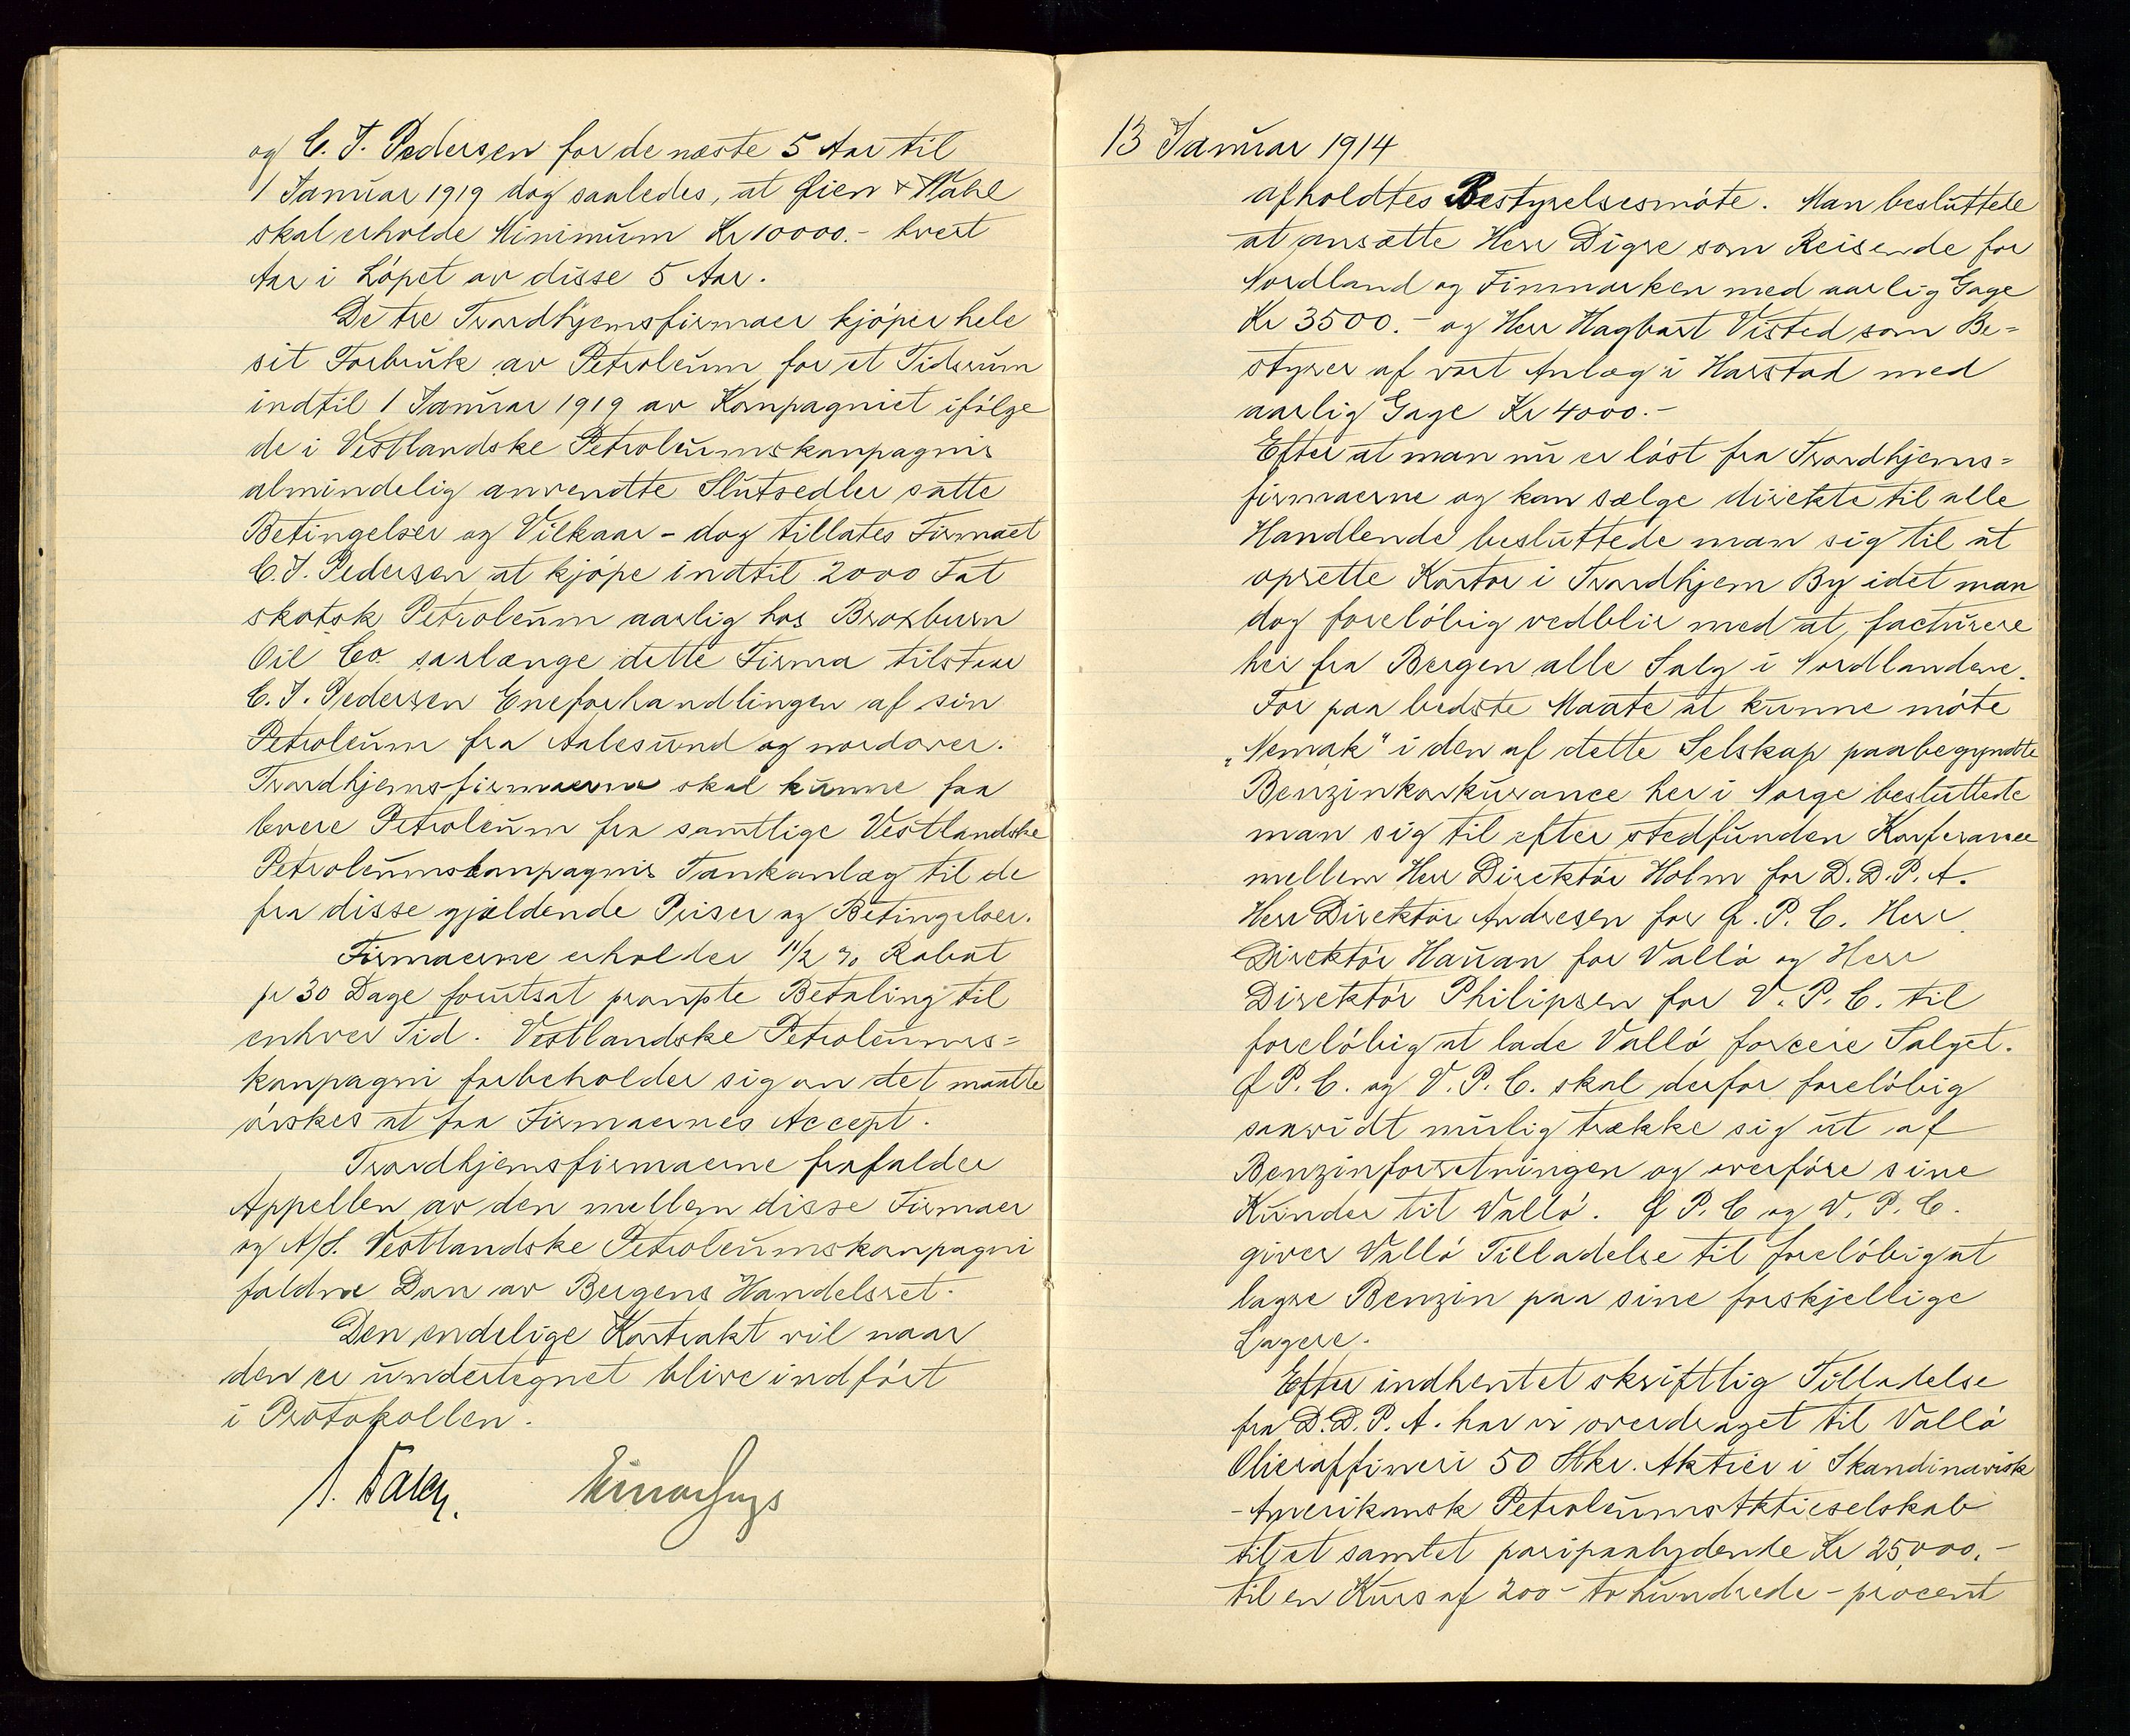 og C. J. Pedersen for de næste 5 Aar til
1 Januar 1919 dog saaledes, at Øien & Wahl
skal erholde Minimum Kr 10000.- hvert
Aar i Löpet av disse 5 Aar.
De tre Trondhjemsfirmaer kjöper hele
sit Forbruk av Petroleum for et Tidsrum
indtil 1 Januar 1919 av Kompagniet ifölge
de i Vestlandske Petroleumskompagnis
almindelig anvendte Slutsedler satte
Betingelser og Vilkaar - dog tillates Firmaet
C. J. Pedersen at kjöpe indtil 2000 Fat
skotsk Petroleum aarlig hos Broxburn
Oil Co. saalænge dette Firma tilstaar
C. J. Pedersen Eneforhandlingen af sin
Petroleum fra Aalesund og nordover.
Trondhjemsfirmaerne skal kunne faa
levere Petroleum fra samtlige Vestlandske
Petroleumskompagnis Tankanlæg til de
fra disse gjældende Priser og Betingelser.
Firmaerne erholder 1 1/2 % Rabat
pr 30 Dage forutsat prompte Betaling til
enhver Tid. Vestlandske Petroleums=
kompagni forbeholder sig om det maatte
önskes at faa Firmaernes Accept.
Trondhjemsfirmaerne frafalder
Appellen av den mellem disse Firmaer
og A/S. Vestlandske Petroleumskompagni
faldne Dom av Bergens Handelsret.
Den endelige Kontrakt vil naar
den er undertegnet blive indfört
i Protokollen.
13 Januar 1914
afholdtes Bestyrelsesmöte. Man besluttede
at ansætte Herr Digre som Reisende for
Nordland og Finmarken med aarlig Gage
Kr 3500.- og Herr Hagbart Visted som Be=
styrer af vort Anlæg i Harstad med
aarlig Gage Kr 4000.-
Efter at man nu er löst fra Trondhjems=
firmaerne og kan sælge direkte til alle
Handlende besluttede man sig til at
oprette Kontor i Trondhjem By idet man
dog foreløbig vedblir med at facturere
her fra Bergen alle Salg i Nordlandene.
For paa bedste Maate at kunne möte
"Nemak" i den af dette Selskap paabegyndte
Benzinkonkurance her i Norge besluttede
man sig til efter stedfunden Konferance
mellem Herr Direktör Holm for D. D. P. A.
Herr Direktör Andresen for Ø. P. C. Herr
Direktör Hauan for Vallö og Herr
Direktör Philipsen for V. P. C. til
forelöbig at lade Vallö forcere Salget.
Ø P. C. og V. P. C. skal derfor forelöbig
saavidt mulig trække sig ut af
Benzinforretningen og overföre sine
Kunder til Vallö. Ø P. C og V. P. C.
giver Vallö Tilladelse til forelöbig at
lagre Benzin paa sine forskjellige
Lagere.
Efter indhentet skriftlig Tilladelse
fra D. D. P. A. har vi overdraget til Vallö
Olieraffineri 50 Stkr. Aktier i Skandinavisk
-Amerikansk Petroleums Aktieselskab
til et samlet paripaalydende Kr 25,000.-
til en Kurs af 200 - to hundrede - procent